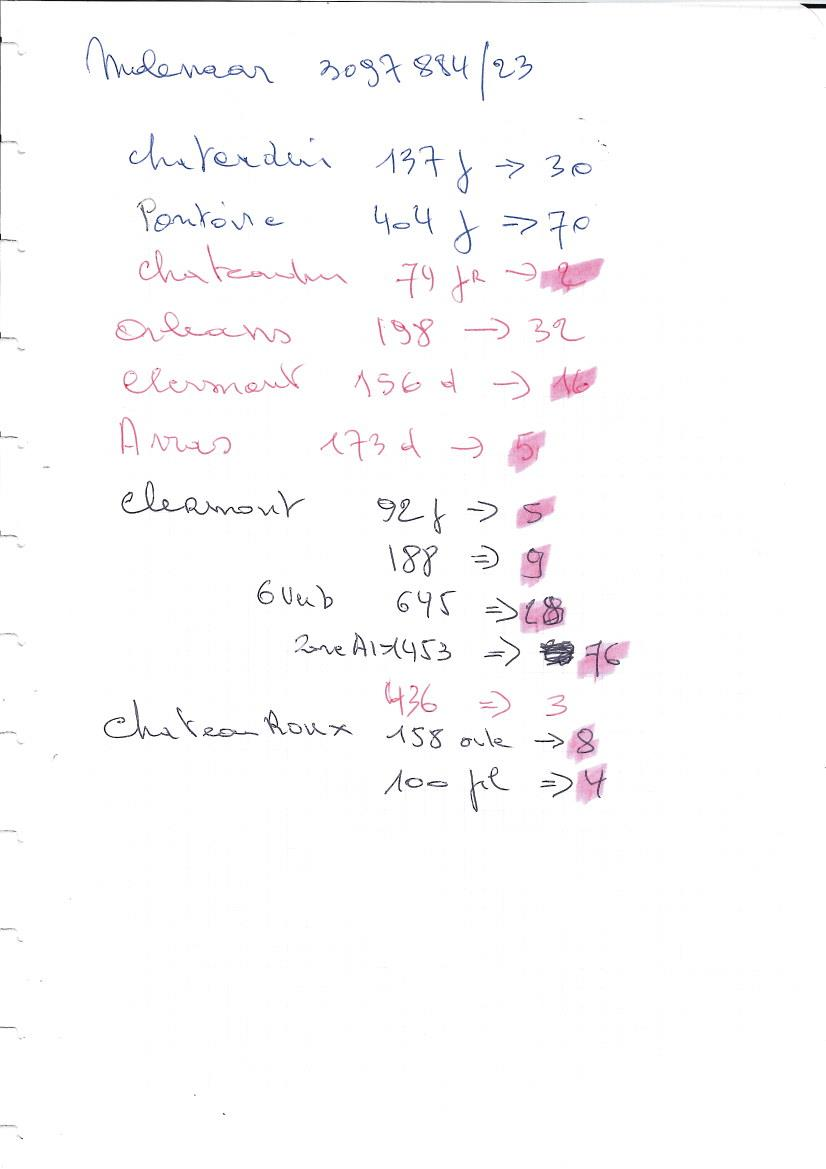 Mulenaar 3097884/23
chaterdun 137 f → 30
Pontoise 404 f => 70
chateaudun 74 fR → 2
Orleans 198 → 32
Clermont 156 d → 16
Arras 173 d → 5
Clermont 92 f → 5
188 => 9
645 => 28
Zone A 1453 => 76
436 => 3
Chateau Roux 158 → 8
100 => 4